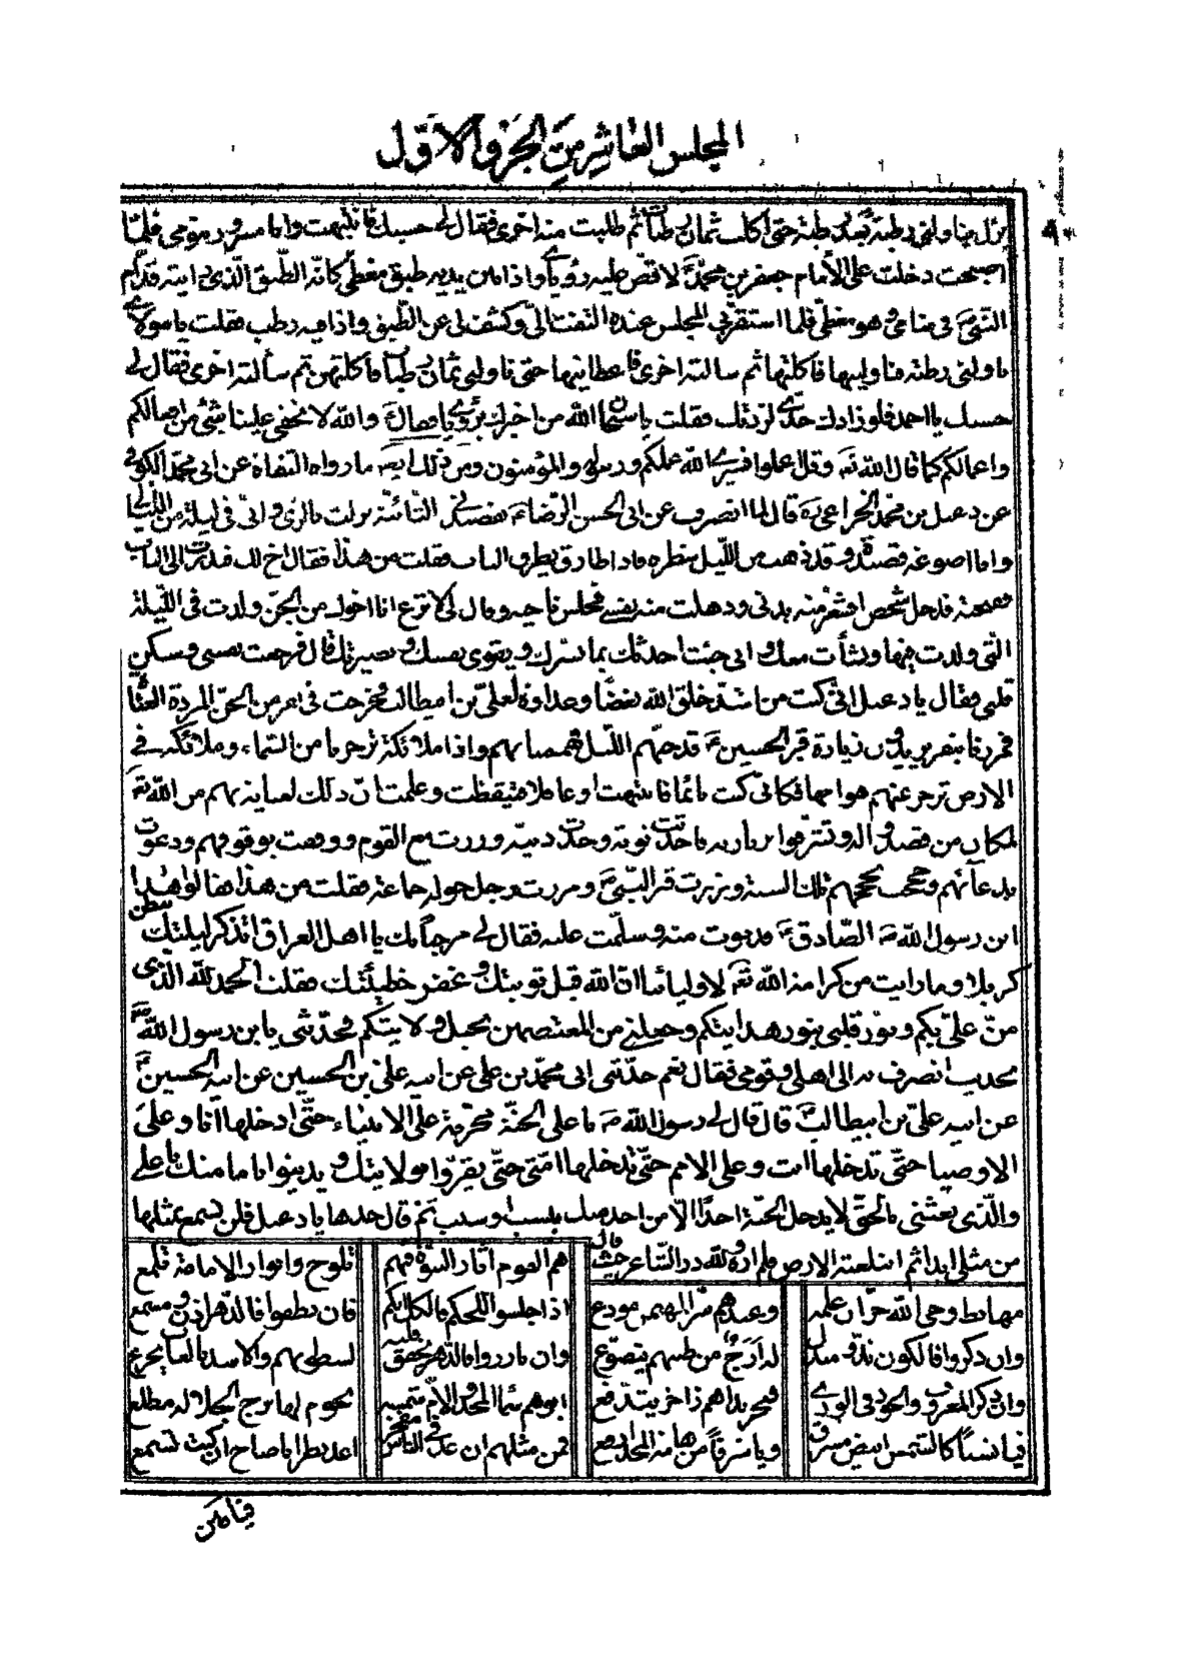 المجلس العاشر من الجزء الاول
يزل يناولني رطبة بعد رطبة حتى اكلت ثمان رطبات ثم طلبت منه اخرى فقال لي حسبك فانتبهت وانا مسرور مومي فلما
اصبحت دخلت على الامام جعفر بن محمد ع لاقص عليه رؤياي واذا بين يديه طبق مغطى كانه الطبق الذي رايته قدام
النبي ص في منامي وهو مغطى فلما استقر بي المجلس عنده التفت الي وكشف لي عن الطبق واذا فيه رطب فقلت يا مولاي
ناولني رطبة فناولنيها فاكلتها ثم سالته اخرى فاعطانيها حتى ناولني ثمان رطبا فاكلتهن ثم سألته اخرى فقال لي
حسبك يا احمد فلو زادك جدي لزدتك فقلت يا سبحان الله من اخبرك برؤياي فقال ع والله لا يخفى علينا شيئ من احوالكم
واعمالكم كما قال الله تع وقل اعملوا فسيرى الله عملكم ورسوله والمؤمنون ومن ذلك ايضا ما رواه الثقاة عن ابي محمد الكوفي
عن دعبل بن محمد الخزاعي ره قال لما انصرفت عن ابي الحسن الرضا ع بقصيدتي التائية نزلت بالري واني في ليلة من الليالي
وانا اصوغ قصيدة وقد ذهب من الليل شطره فاذا طارق يطرق الباب فقلت من هذا فقال اخ لك فبدرت الى الباب
ففتحته فدخل شخص اقشعر منه بدني وذهلت منه نفسي فجلس ناحية وقال لي لا ترع انا اخوك من الجن ولدت في الليلة
التي ولدت فيها ونشأت معك واني جئت احدثك بما يسرك ويقوي نفسك وبصيرتك قال فرجعت نفسي وسكن
قلبي فقال يا دعبل اني كنت من اشد خلق الله بغضا وعداوة لعلي بن ابيطالب فخرجت في نفر من الجن المردة العتاة
فمررنا بنفر يريدون زيارة قبر الحسين ع قد جنهم الليل فهممنا بهم واذا ملائكة تزجرنا من السماء وملائكة في
الارض تزجر عنهم هوامها فكاني كنت نائما فانتبهت او غافلا فتيقظت وعلمت ان ذلك لعناية بهم من الله تع
لمكان من قصدوا له وتشرفوا بزيارته فاحدثت توبة وجددت نية وزرت مع القوم ووقفت بوقوفهم ودعوت
بدعائهم وحججت بحجهم تلك السنة وزرت قبر النبي ص ومررت برجل حوله جماعة فقلت من هذا فقالوا هذا
ابن رسول الله ص الصادق ع فدنوت منه وسلمت عليه فقال لي مرحبا بك يا اهل العراق اتذكر ليلتك ببطن
كربلا وما رايت من كرامة الله تع لاوليائنا ان الله قبل توبتك وغفر خطيئتك فقلت الحمد لله الذي
من علي بكم ونور قلبي بنور هدايتكم وجعلني من المعتصمين بحبل ولايتكم فحدثني يا بن رسول الله ص
بحديث انصرف به الى اهلي وقومي فقال نعم حدثني ابي محمد بن علي عن ابيه علي بن الحسين عن ابيه الحسين ع
عن ابيه علي بن ابيطالب ع قال قال لي رسول الله ص يا علي الجنة محرمة على الانبياء حتى ادخلها انا وعلى
الاوصيا حتى تدخلها انت وعلى الامم حتى تدخلها امتي حتى يقروا بولايتك ويدينوا بامامتك يا علي
والذي بعثني بالحق لا يدخل الجنة احدا الا من اخذ منك بنسب او سبب ثم قال خذها يا دعبل فلن تسمع بمثلها
من مثلي ابدا ثم ابتلعته الارض فلم اره ولله در الشاعر حيث قال
هم القوم آثار النبوة فيهم تلوح وانوار الامامة تلمع
مهابط وحي الله خزان علمه وعندهم سر المهيمن مودع
اذا جلسوا للحكم فالكل ابكم فان نطقوا فالدهر اذن ومسمع
وان ذكروا فالكون ند ومندل له ارج من طيبهم يتضوع
وان بارزوا فالدهر يخفق قلبه لسطوتهم والاسد بالغاب يجزع
وان ذكر المعروف والجود في الورى فبحر نداهم زاخر يتدفع
ابوهم سما المجد والام شمسه نجوم لها برج الجلالة مطلع
فيا نسبا كالشمس ابيض مشرق ويا شرفا من هامة المجد ارفع
فمن مثلهم ان عد في الناس مفخر اعد نظرا يا صاح ان كنت تسمع
فيا من